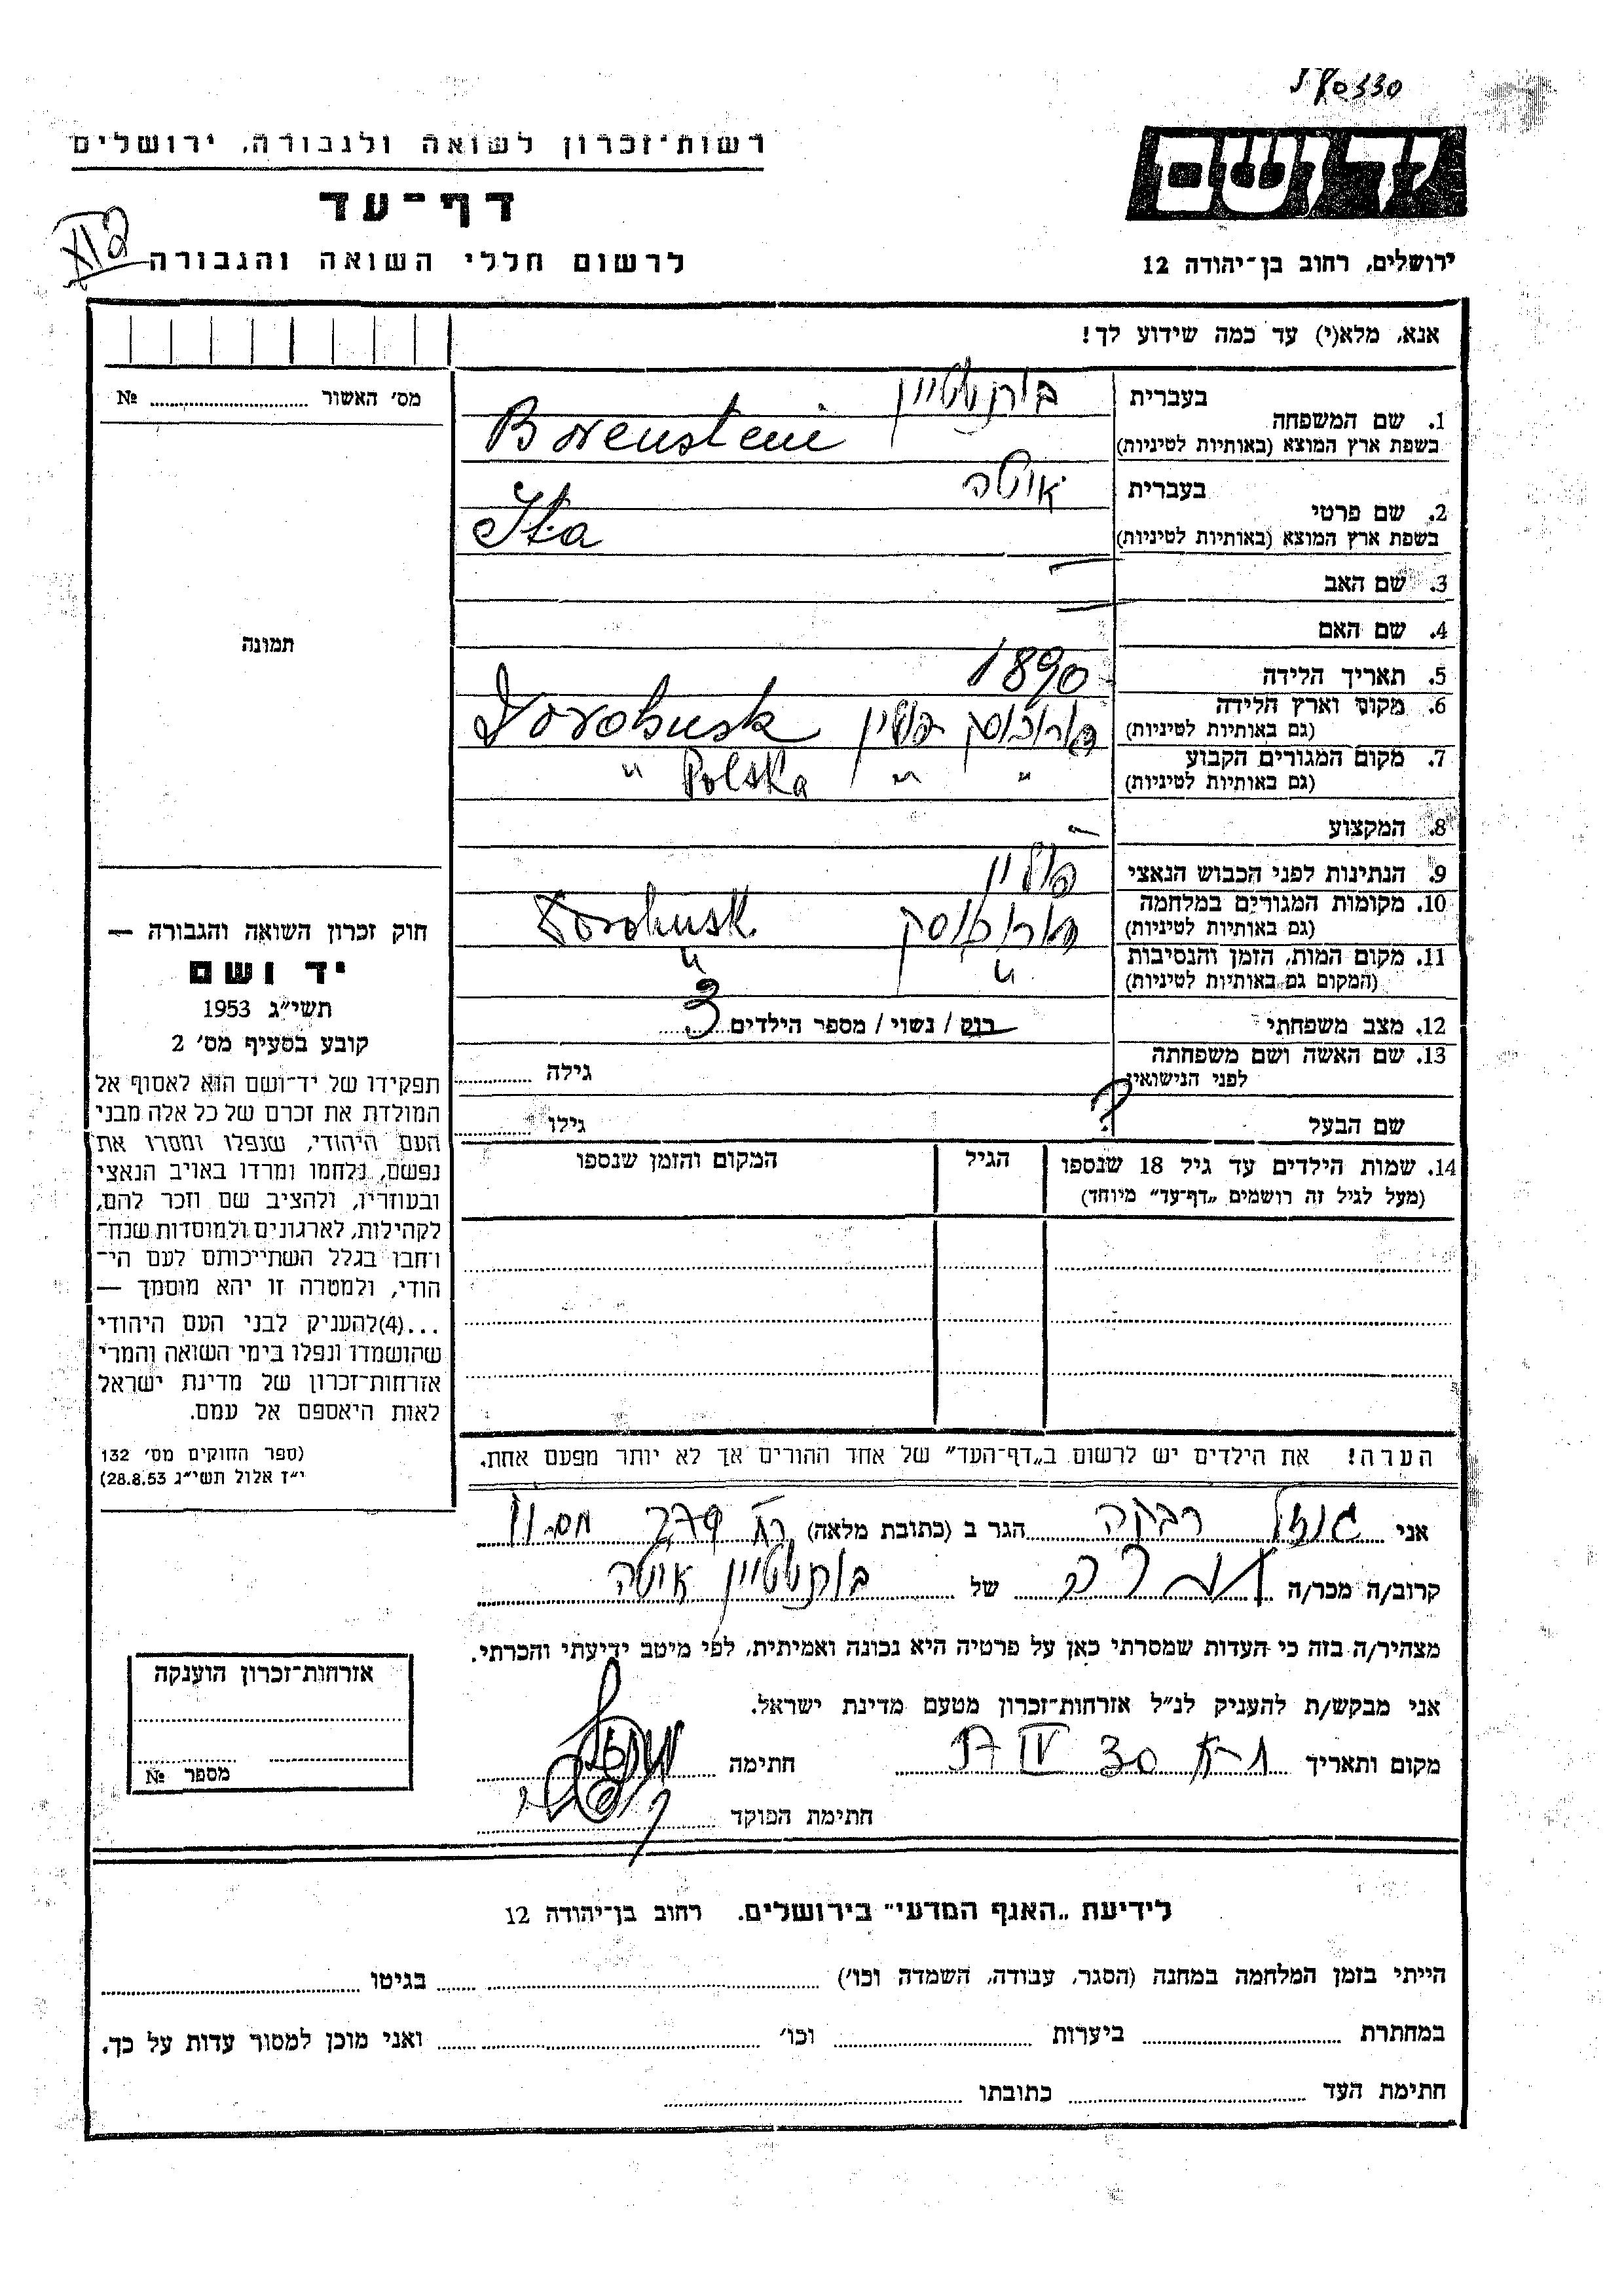 רשות־זכרון לשואה ולגבורה, ירושלים
דף־עד
לרשום חללי השואה והגבורה
יד ושם
ירושלים, רחוב בן־יהודה 12
אנא, מלא(י) עד כמה שידוע לך!
מס' האשור № 
תמונה
1. שם המשפחה
בעברית
בורנשטיין
בשפת ארץ המוצא (באותיות לטיניות)
Borenstein
2. שם פרטי
בעברית
איטה
בשפת ארץ המוצא (באותיות לטיניות)
Ita
3. שם האב —
4. שם האם —
5. תאריך הלידה 1890
6. מקום וארץ הלידה
(גם באותיות לטיניות)
7. מקום המגורים הקבוע
(גם באותיות לטיניות) " " Polska "
8. המקצוע —
9. הנתינות לפני הכבוש הנאצי פולין
10. מקומות המגורים במלחמה
(גם באותיות לטיניות)
11. מקום המות, הזמן והנסיבות " "
(המקום גם באותיות לטיניות)
12. מצב משפחתי רוק / נשוי / מספר הילדים 3
13. שם האשה ושם משפחתה
לפני הנישואין גילה
שם הבעל ? גילו
14. שמות הילדים עד גיל 18 שנספו הגיל המקום והזמן שנספו
(מעל לגיל זה רושמים "דף־עד" מיוחד)
הערה! את הילדים יש לרשום ב"דף־העד" של אחד ההורים אך לא יותר מפעם אחת.
חוק זכרון השואה והגבורה —
יד ושם
תשי"ג 1953
קובע בסעיף מס' 2
תפקידו של יד־ושם הוא לאסוף אל
המולדת את זכרם של כל אלה מבני
העם היהודי, שנפלו ומסרו את
נפשם, נלחמו ומרדו באויב הנאצי
ובעוזריו, ולהציב שם וזכר להם,
לקהילות, לארגונים ולמוסדות שנח־
רבו בגלל השתייכותם לעם הי־
הודי, ולמטרה זו יהא מוסמך —
...(4) להעניק לבני העם היהודי
שהושמדו ונפלו בימי השואה והמרי
אזרחות־זכרון של מדינת ישראל
לאות היאספם אל עמם.
(ספר החוקים מס' 132
י"ז אלול תשי"ג 28.8.53)
אני רבקה הגר ב (כתובת מלאה)
קרוב/ה מכר/ה של בורנשטיין איטה
מצהיר/ה בזה כי העדות שמסרתי כאן על פרטיה היא נכונה ואמיתית, לפי מיטב ידיעתי והכרתי.
אני מבקש/ת להעניק לנ"ל אזרחות־זכרון מטעם מדינת ישראל.
מקום ותאריך 30 IV חתימה
חתימת הפוקד
אזרחות־זכרון הוענקה
מספר №
לידיעת "האגף המדעי" בירושלים, רחוב בן־יהודה 12
הייתי בזמן המלחמה במחנה (הסגר, עבודה, השמדה וכו') בגיטו
במחתרת ביערות וכו' ואני מוכן למסור עדות על כך.
חתימת העד כתובתו